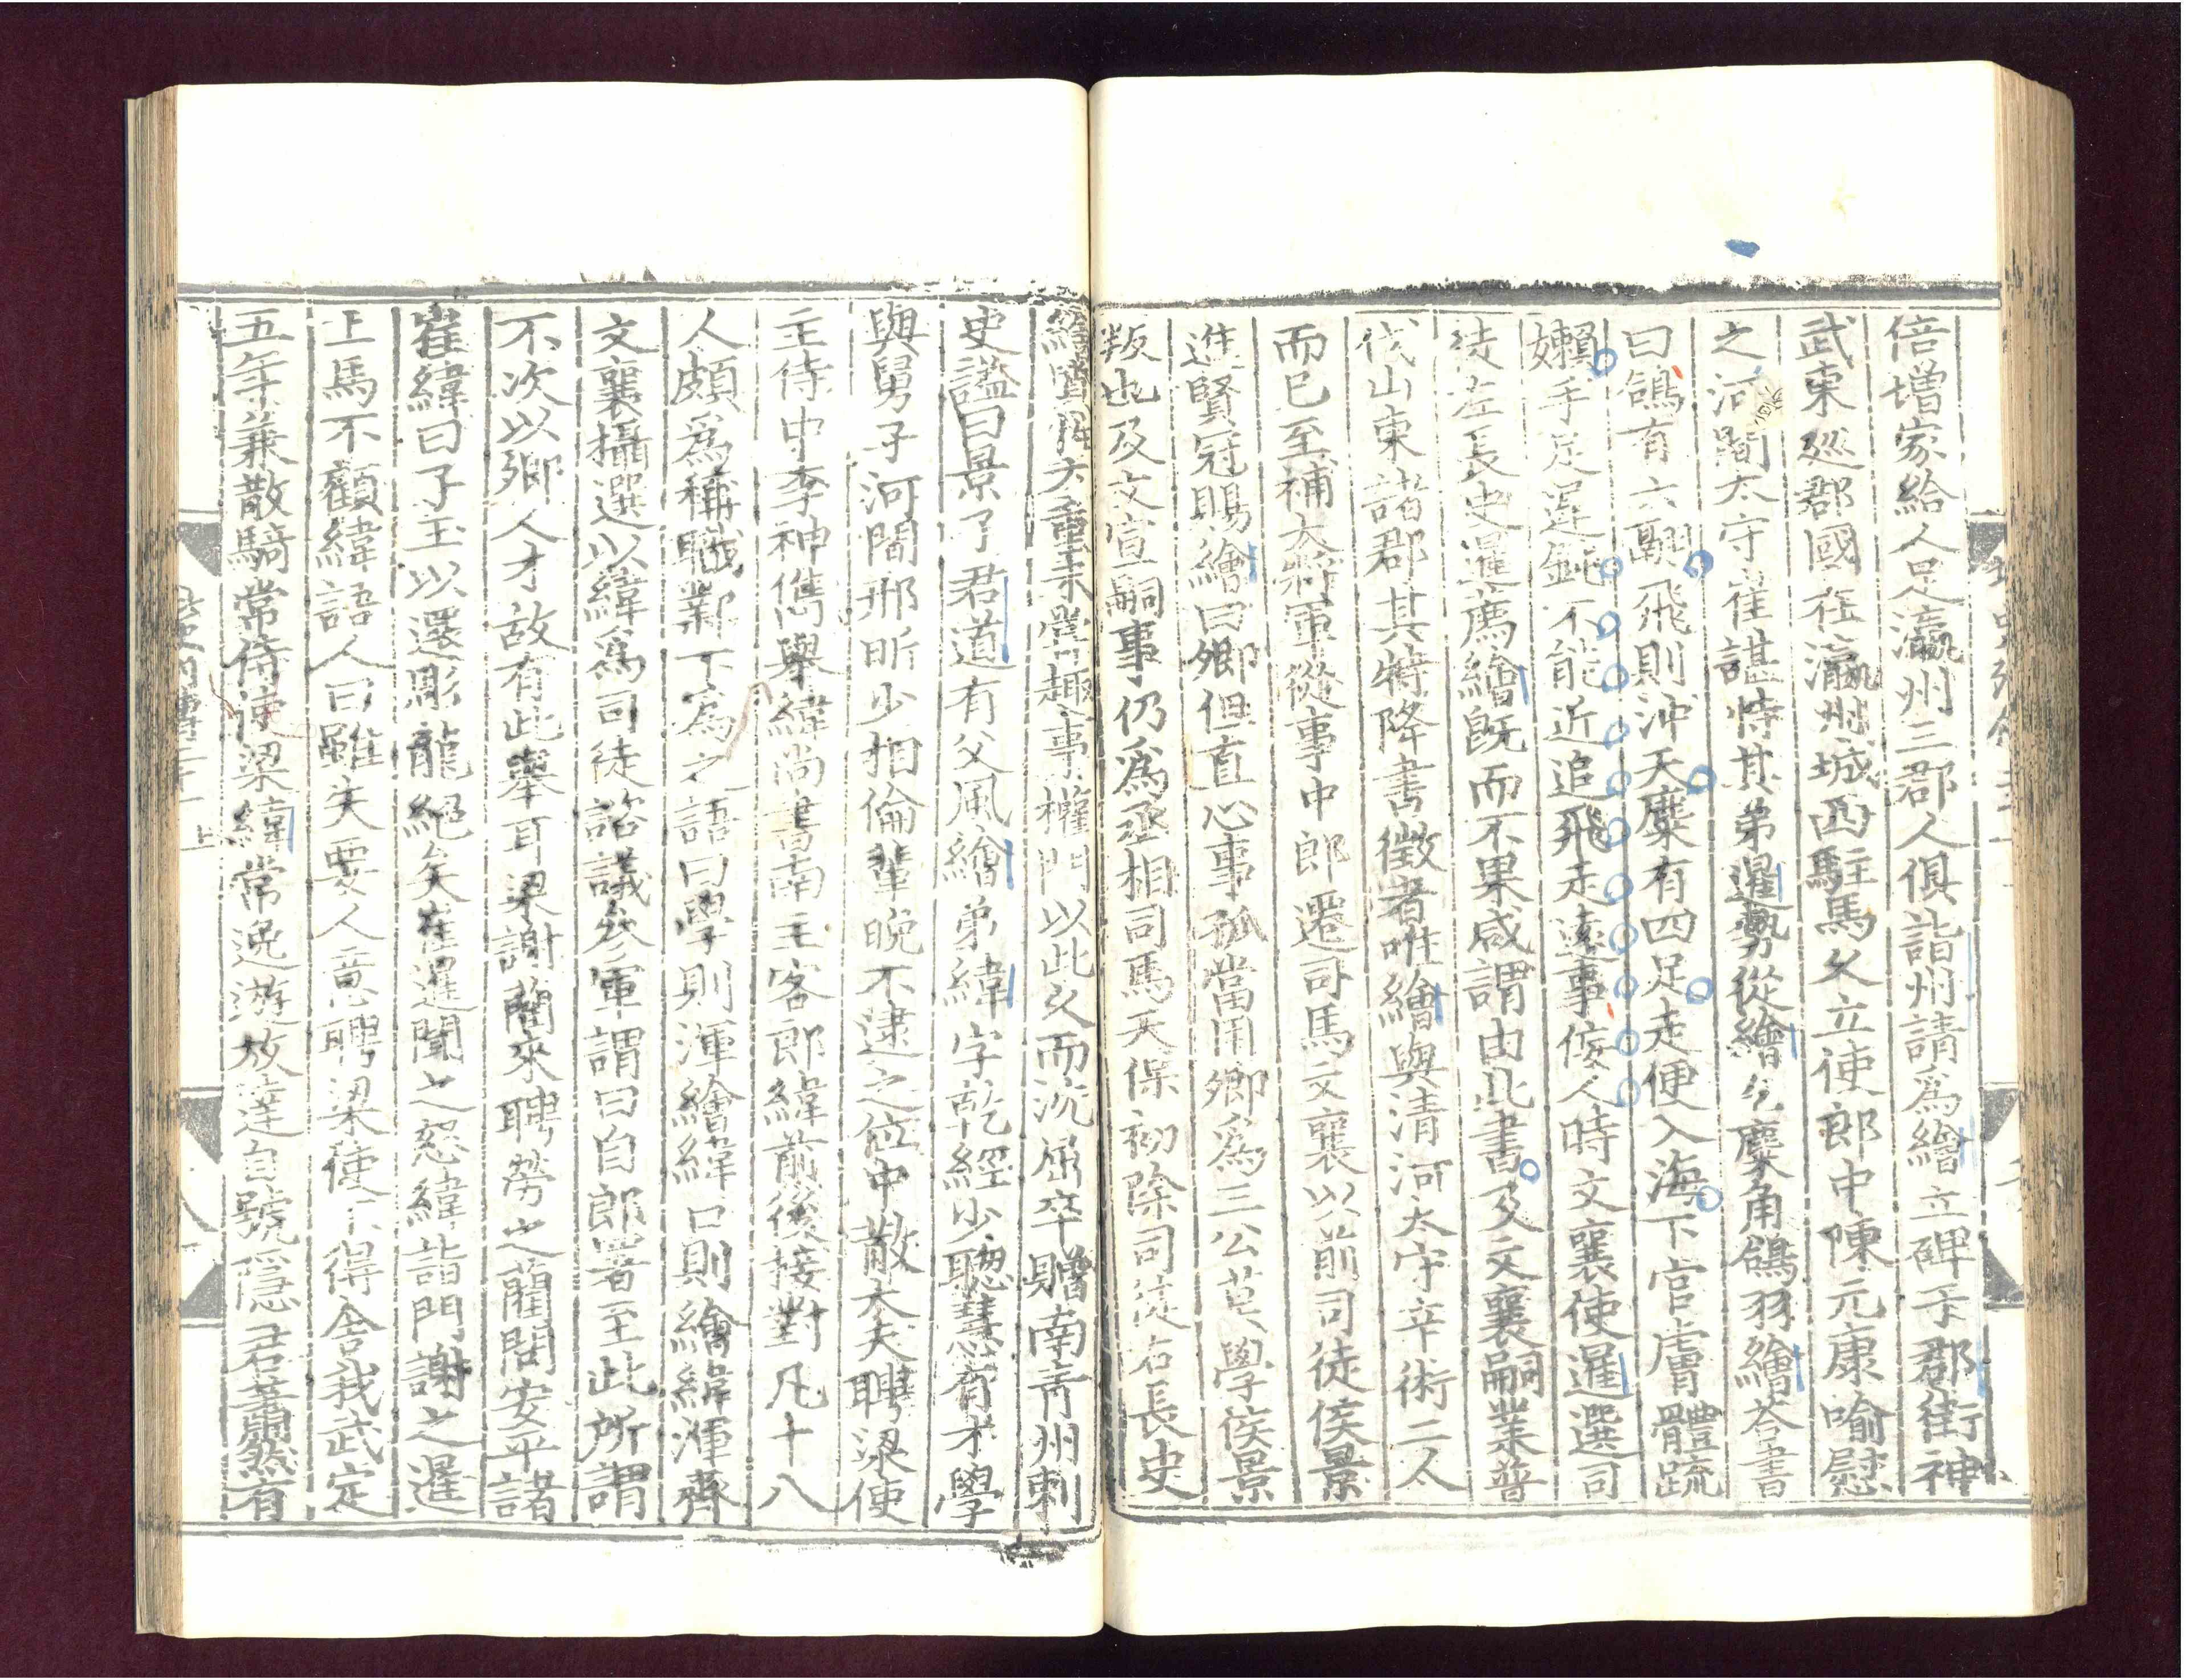 倍增家給人足瀛州三郡人俱詣州請爲繪立碑于郡街神
武東巡郡國在瀛州城西駐馬久立使郎中陳元康喻慰
之河閒太守崔諶恃其弟暹勢從繪乞麋角鴿羽繪荅書
曰鴿有六翮飛則沖天麋有四足走便入海下官膚體踈
嬾手足遲鈍不能近追飛走遠事佞人時文襄使暹選司
徒左長史暹薦繪旣而不果咸謂由此書及文襄嗣業普
代山東諸郡其特降書徵者唯繪與清河太守辛術二人
而已至補大將軍從事中郎遷司馬文襄以前司徒侯景
進賢冠賜繪曰卿但直心事孤當用卿爲三公莫學侯景
叛也及文宣嗣事仍爲丞相司馬天保初除司徒右長史
繪質性方重未嘗趣事權門以此久而沈屈卒贈南青州刺
史謚曰景子君道有父風繪弟緯字乾經少聰慧有才學
與舅子河閒邢昕少相倫輩晚不逮之位中散大夫聘梁使
主侍中李神儁舉緯尚書南主客郎緯前後接對凡十八
人頗爲稱職鄴下爲之語曰學則渾繪緯口則繪緯渾齊
文襄攝選以緯爲司徒諮議參軍謂曰自郎署至此所謂
不次以卿人才故有此舉耳梁謝藺來聘勞之藺問安平諸
崔緯曰子玉以還彫龍絕矣崔暹聞之怒緯詣門謝之暹
上馬不顧緯語人曰雖失要人意聘梁使不得舍我武定
五年兼散騎常侍使梁緯常逸遊放達自號隱君蕭然有